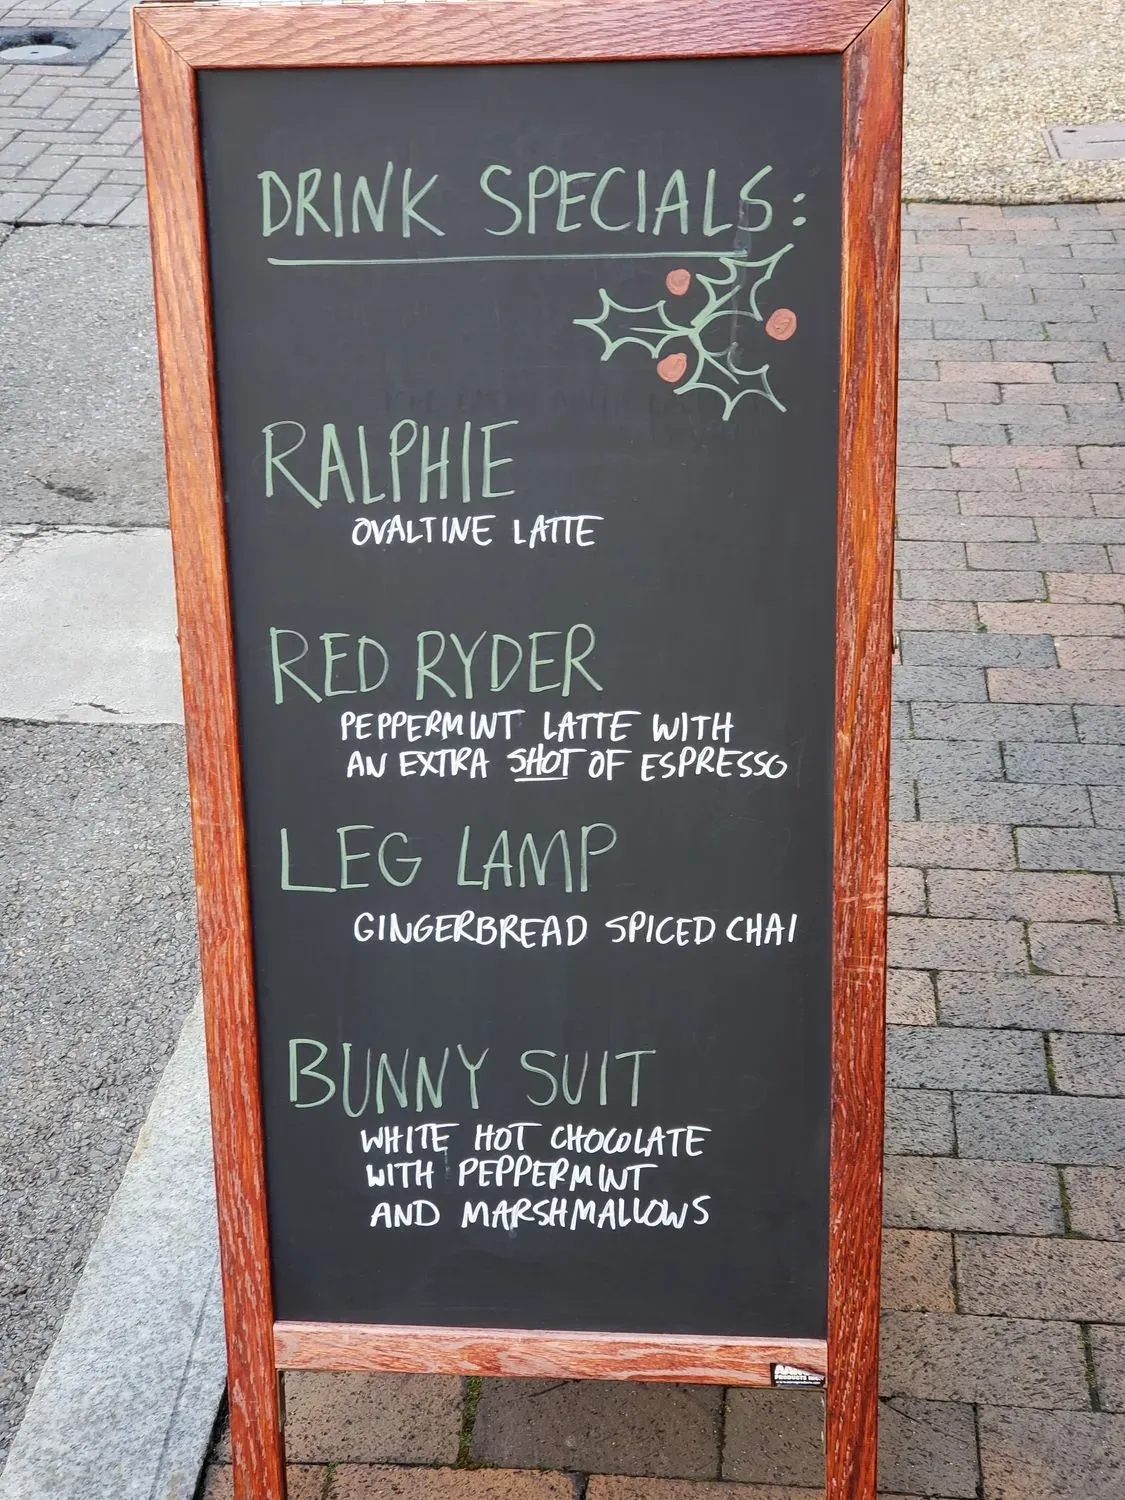 DRINK SPECIALS:
RALPHIE
OVALTINE LATTE
RED RYDER
PEPPERMINT LATTE WITH
AN EXTRA SHOT OF ESPRESSO
LEG LAMP
GINGERBREAD SPICED CHAI
BUNNY SUIT
WHITE HOT CHOCOLATE
WITH PEPPERMINT
AND MARSHMALLOWS